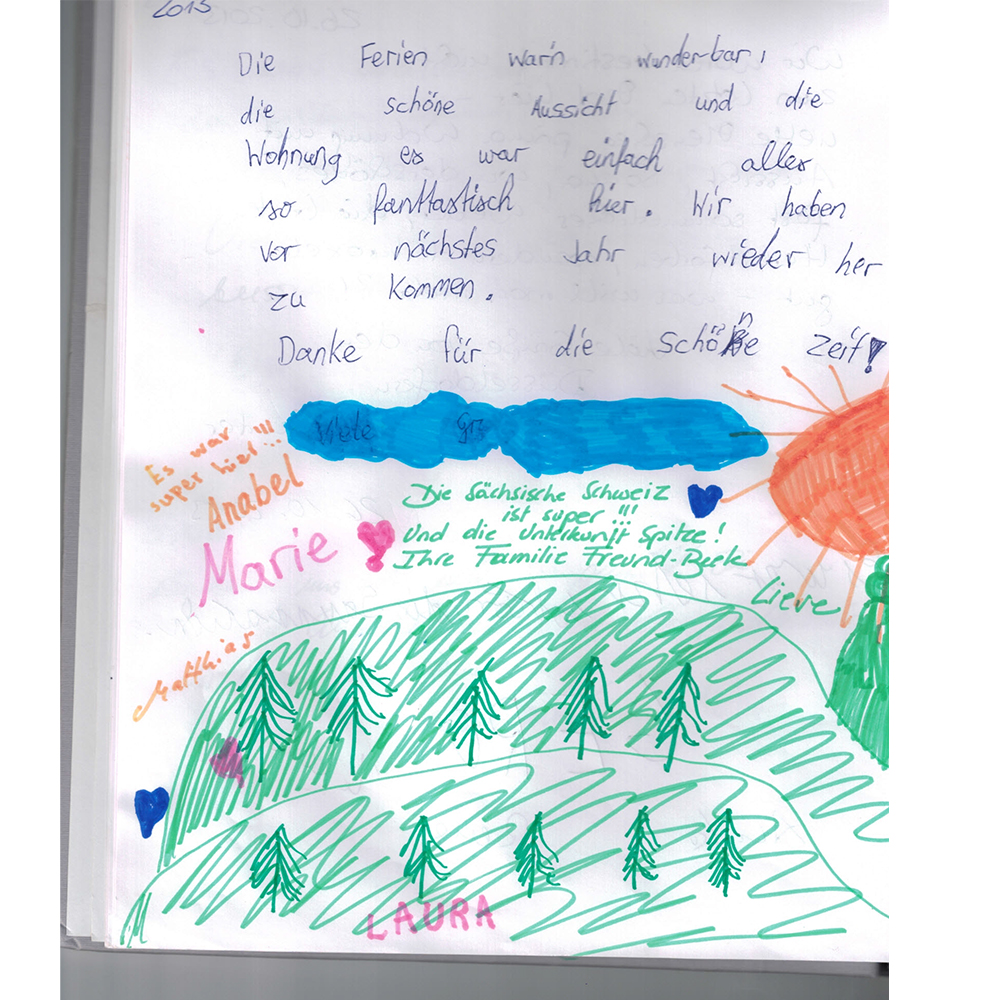 2013
Die Ferien war'n wunderbar,
die schöne Aussicht und die
Wohnung es war einfach alles
so fanttastisch hier. Wir haben
vor nächstes Jahr wieder her
zu kommen.
Danke für die Schöne Zeit!
Viele Grü
Es war !!!
super hier!!!
Anabel
Die Sächsische Schweiz
ist super!!!
Und die Unterkunft Spitze!
Ihre Familie Freund-Beek
Marie
Lieve
Matthias
LAURA